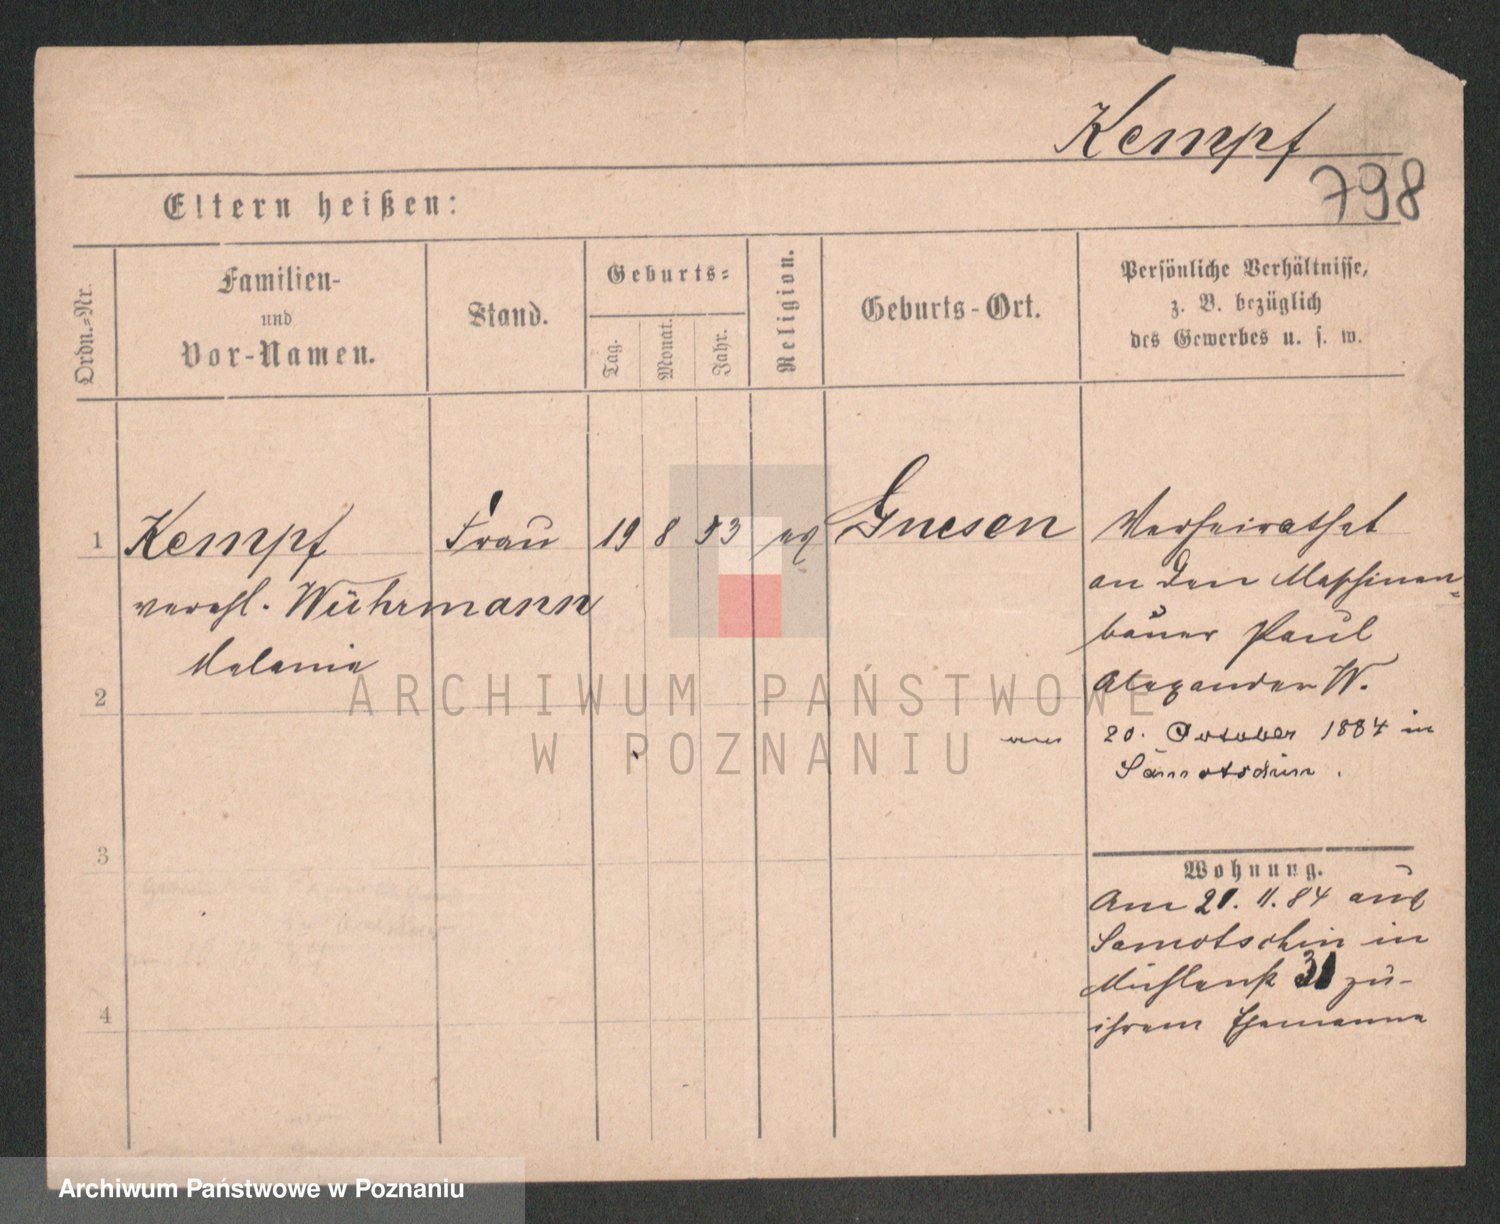 Kempf
798
Eltern heißen:
Ordn.=Nr.
Familien-
und
Vor-Namen.
Stand.
Geburts=
Tag.
Monat.
Jahr.
Religion.
Geburts-Ort.
Persönliche Verhältnisse,
z. B. bezüglich
des Gewerbes u. s. w.
1 Kempf Frau 19 8 53 ev Gnesen
verehl. Wührmann
Melanie
Verheirathet
an den Maschinen=
bauer Paul
Alexander W.
am 20. October 1884 in
Samotschin.
2
3
4
Wohnung.
Am 21. 11. 84 aus
Samotschin in
Mühlenst 31 zu
ihrem Ehemanne
ARCHIWUM PAŃSTWOWE
W POZNANIU
Archiwum Państwowe w Poznaniu